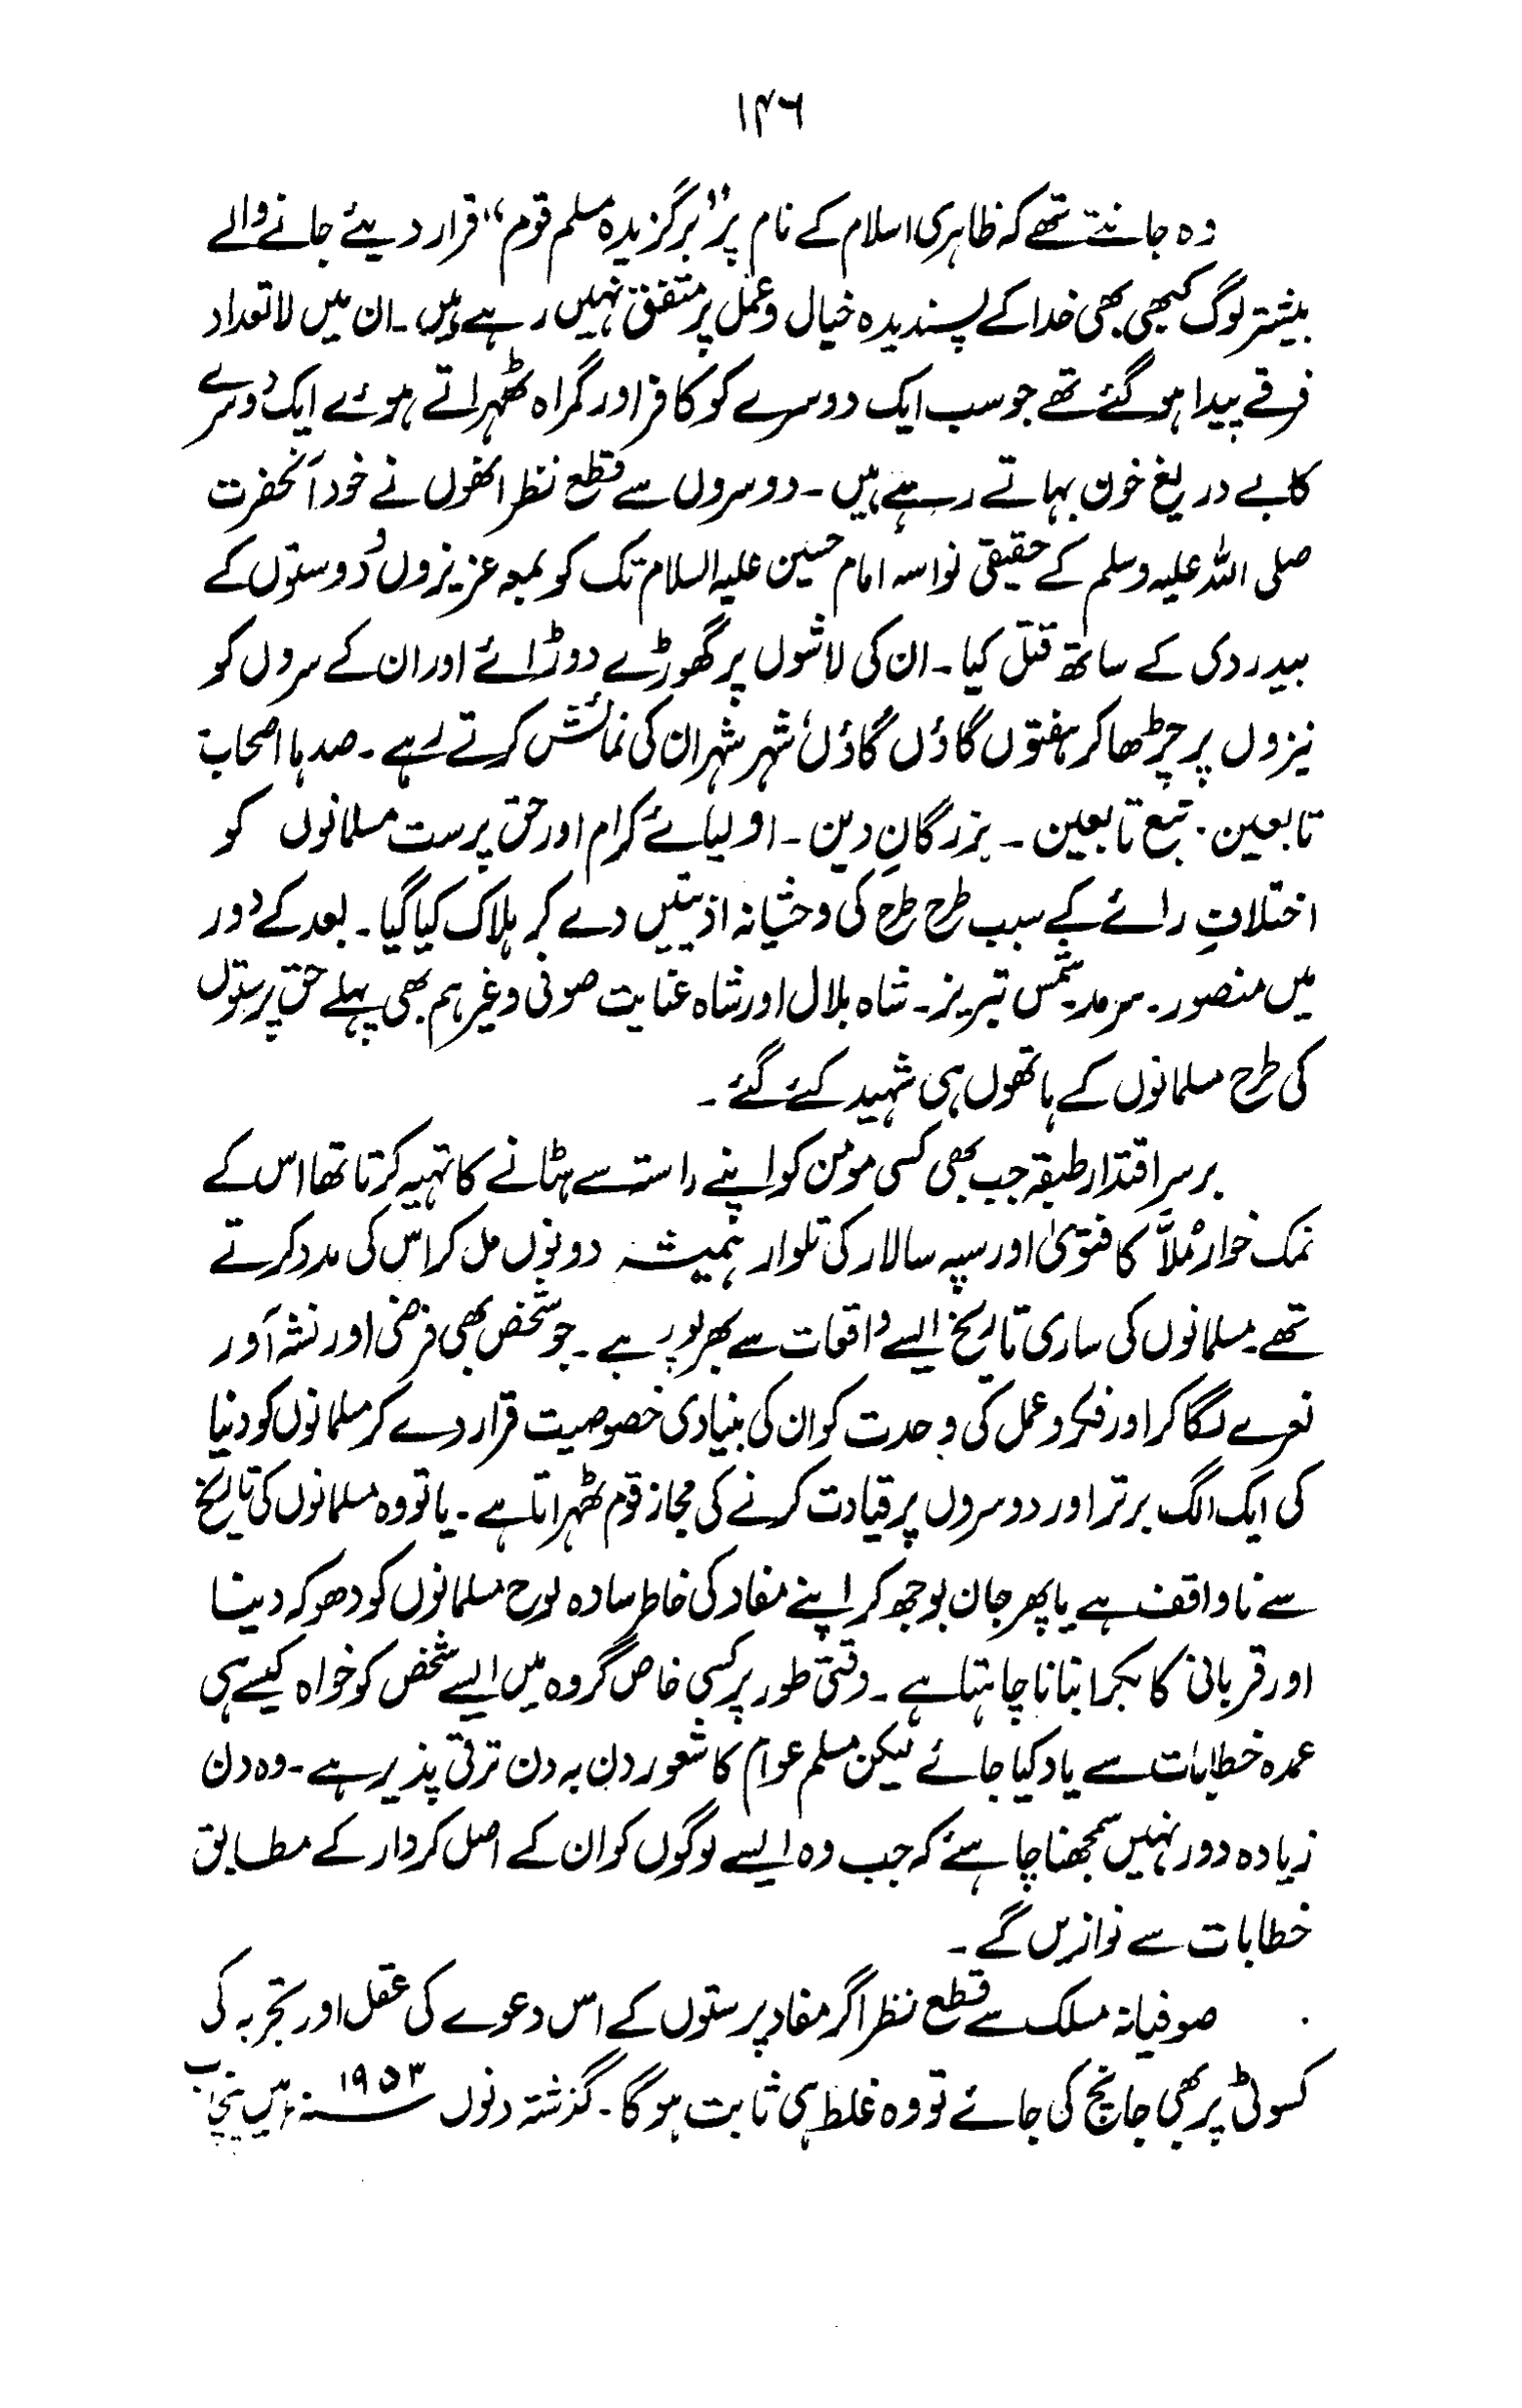 ۱۴۶
وہ جانتے تھے کہ ظاہری اسلام کے نام پر "برگزیدہ مسلم قوم" قرار دیئے جانے والے
بیشتر لوگ کبھی بھی خدا کے پسندیدہ خیال و عمل پر متفق نہیں رہے ہیں۔ ان میں لاتعداد
فرقے پیدا ہو گئے تھے جو سب ایک دوسرے کو کافر اور گمراہ ٹھہراتے ہوئے ایک دوسرے
کا بے دریغ خون بہاتے رہے ہیں۔ دوسروں سے قطع نظر انھوں نے خود آنحضرت
صلی اللہ علیہ وسلم کے حقیقی نواسہ امام حسین علیہ السلام تک کو بمعہ عزیزوں و دوستوں کے
بیدردی کے ساتھ قتل کیا۔ ان کی لاشوں پر گھوڑے دوڑائے اور ان کے سروں کو
نیزوں پر چڑھا کر ہفتوں گاؤں گاؤں، شہر شہر ان کی نمائش کرتے رہے۔ صدہا اصحاب
تابعین۔ تبع تابعین۔ بزرگانِ دین۔ اولیائے کرام اور حق پرست مسلمانوں کو
اختلافِ رائے کے سبب طرح طرح کی وحشیانہ اذیتیں دے کر ہلاک کیا گیا۔ بعد کے دور
میں منصور۔ سرمد۔ شمس تبریز۔ شاہ بلال اور شاہ عنایت صوفی وغیرہم بھی پہلے حق پرستوں
کی طرح مسلمانوں کے ہاتھوں ہی شہید کئے گئے۔
برسرِ اقتدار طبقہ جب بھی کسی مومن کو اپنے راستہ سے ہٹانے کا تہیہ کرتا تھا اس کے
نمک خوار مُلاّ کا فتویٰ اور سپہ سالار کی تلوار ہمیشہ دونوں مل کر اس کی مدد کرتے
تھے۔ مسلمانوں کی ساری تاریخ ایسے واقعات سے بھرپور ہے۔ جو شخص بھی فرضی اور نشہ آور
نعرے لگا کر اور فکر و عمل کی وحدت کو ان کی بنیادی خصوصیت قرار دے کر مسلمانوں کو دنیا
کی ایک الگ برتر اور دوسروں پر قیادت کرنے کی مجاز قوم ٹھہراتا ہے۔ یا تو وہ مسلمانوں کی تاریخ
سے ناواقف ہے یا پھر جان بوجھ کر اپنے مفاد کی خاطر سادہ لوح مسلمانوں کو دھوکہ دینا
اور قربانی کا بکرا بنانا چاہتا ہے۔ وقتی طور پر کسی خاص گروہ میں ایسے شخص کو خواہ کیسے ہی
عمدہ خطابات سے یاد کیا جائے لیکن مسلم عوام کا شعور دن بہ دن ترقی پذیر ہے۔ وہ دن
زیادہ دور نہیں سمجھنا چاہئے کہ جب وہ ایسے لوگوں کو ان کے اصل کردار کے مطابق
خطابات سے نوازیں گے۔
صوفیانہ مسلک سے قطع نظر اگر مفاد پرستوں کے اس دعوے کی عقل اور تجربہ کی
کسوٹی پر بھی جانچ کی جائے تو وہ غلط ہی ثابت ہوگا۔ گذشتہ دنوں ۱۹۵۳ء میں پنجاب